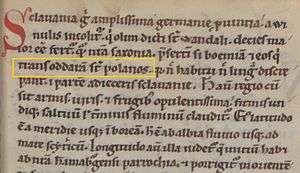 Sclauania g amplissima germanie puintia a wi
nulis incolit. q olim dicti st wandali. decies ma
ior ee fert. q nra saxonia. psertī si boemiā et eos q
trans oddarā st polanos. q n habitu n lingua discre
pant. ī parte adiecerit sclauanie. Hec aū regio cū
sit armis. uiris. et frugib opulentissima. firmis un
diq saltuū ł fluminū claudit Ei latitudo
ē a meridie usq ī boreā. h ē ab albia fluuio usq ad
mare scyticum. Longitudo aū illa uidet q initiū
ab nra hāmaburgensi parrochia. et porrigit ī orientem